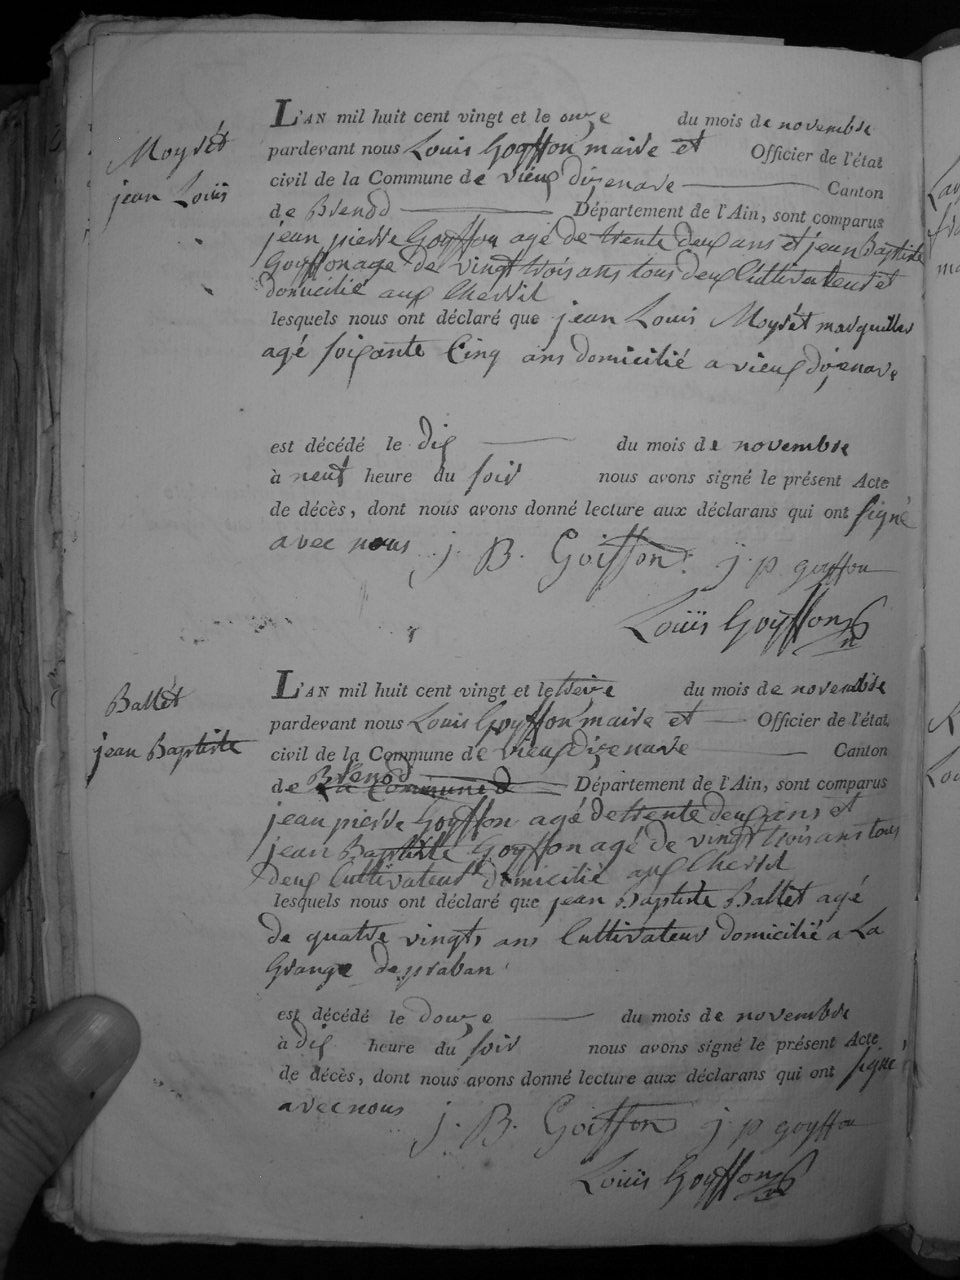 Moyrét
jean Loüis
L'AN mil huit cent vingt et le onze du mois de novembre
pardevant nous Louis Goyffon maire et Officier de l'état
civil de la Commune de vieux dizenave Canton
de Brenod Département de l'Ain, sont comparus
jean pierre Goyffon agé de trente deux ans et jean Baptiste
Goyffon age de vingt trois ans tous deux Cultivateurs et
domicilié aux Chevril
lesquels nous ont déclaré que jean Louis Moyrét marquiller
agé soixante Cinq ans domicilié a vieux dizenave
est décédé le dix du mois de novembre
à neuf heure du soir nous avons signé le présent Acte
de décès, dont nous avons donné lecture aux déclarans qui ont signé
avec nous j. B. Goiffon. j. p goyffon
Loüis Goyffon
Ballet
jean Baptiste
L'AN mil huit cent vingt et le treize du mois de novembre
pardevant nous Louis Goyffon maire et Officier de l'état
civil de la Commune de vieux dizenave Canton
Brenod
de La Commune d Département de l'Ain, sont comparus
jean pierre Goyffon agé de trente deux ans et
jean Baptiste Goyffon agé de vingt trois ans tous
deux Cultivateurs domicilié aux Chevril
lesquels nous ont déclaré que jean Baptiste Ballet agé
de quatre vingts ans Cultivateur domicilié a La
Grange de praban
est décédé le douze du mois de novembre
à dix heure du soir nous avons signé le présent Acte
de décès, dont nous avons donné lecture aux déclarans qui ont signé
avec nous j. B. Goiffon j. p goyffon
Loüis Goyffon